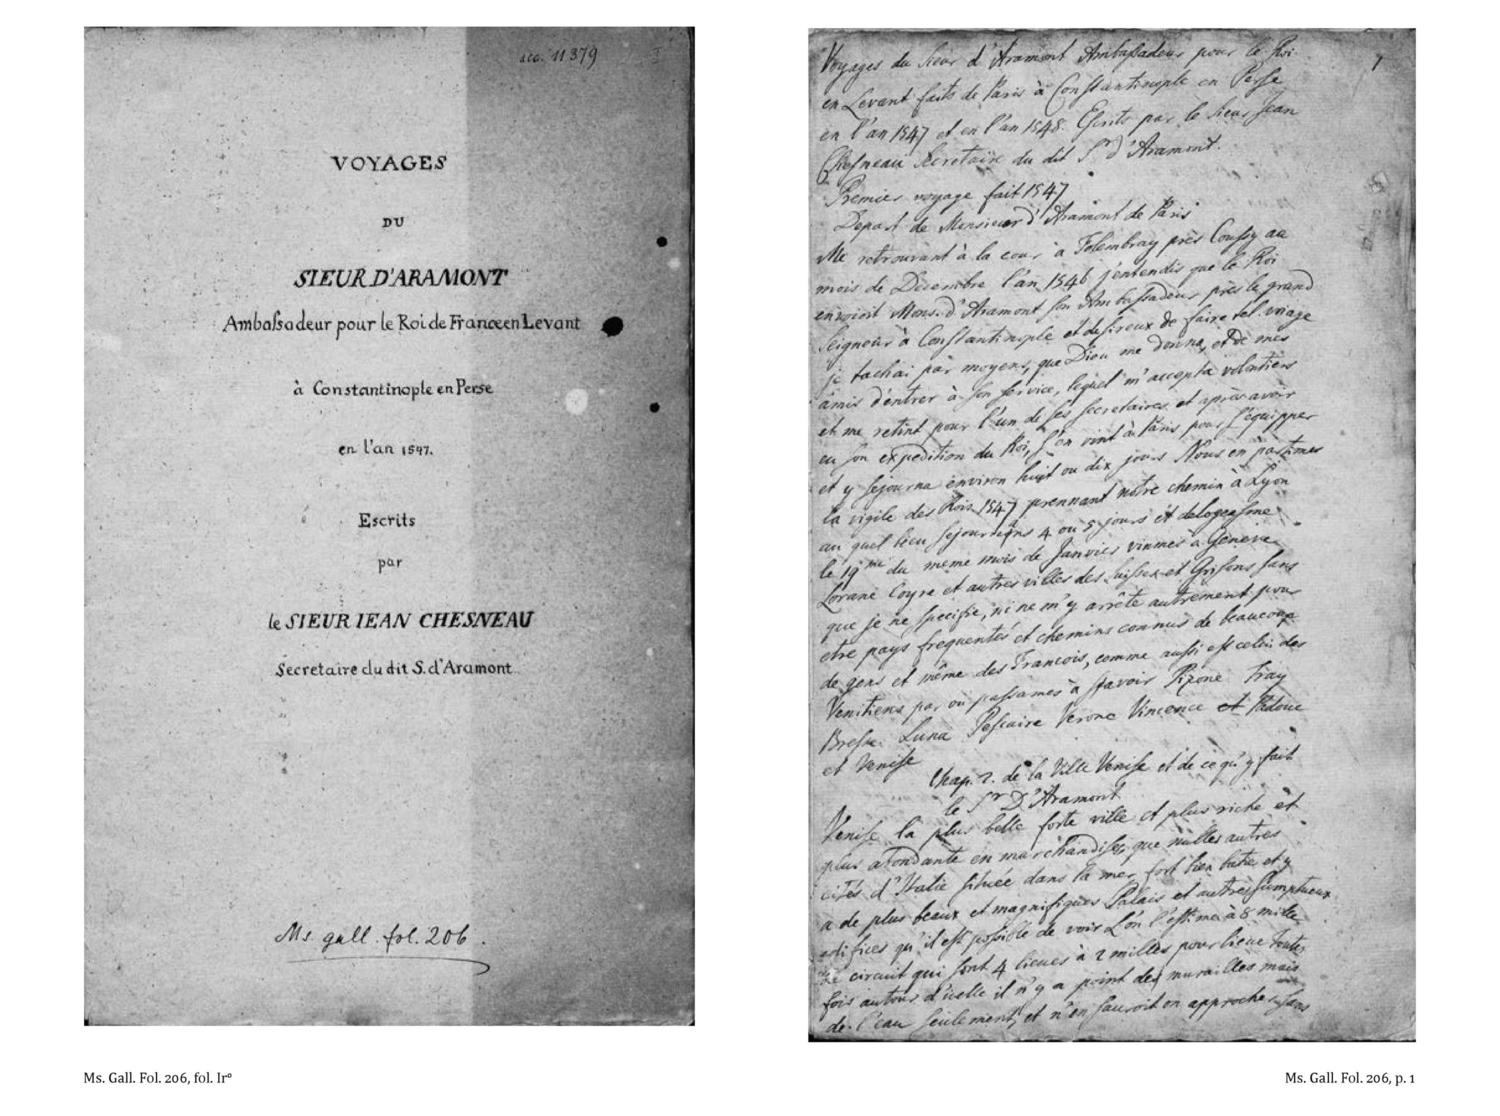 acc. 11379
I
VOYAGES
DU
SIEUR D'ARAMONT
Ambaſsadeur pour le Roi de France en Levant
à Constantinople en Perse
en l'an 1547.
Escrits
par
le SIEUR IEAN CHESNEAU
Secretaire du dit S. d'Aramont
Ms. gall. fol. 206.
Ms. Gall. Fol. 206, fol. Irº
1
Voyages du Sieur d'Aramont Ambaſſadeur pour le Roi
en Levant faits de Paris à Conſtantinople en Perſe
en l'an 1547 et en l'an 1548. Eſcrits par le Sieur Jean
Cheſneau Secretaire du dit Sr d'Aramont.
Premier voyage fait 1547
Depart de Monsieur d'Aramont de Paris
Me retrouvant à la cour à Folembray près Couſſy au
mois de Decembre l'an 1546 j'entendis que le Roi
envoioit Mons. d'Aramont ſon Ambaſſadeur près le grand
Seigneur à Conſtantinople et deſireux de faire tel voiage
je tachai par moyens, que Dieu me donna, et de mes
amis d'entrer à ſon ſervice, lequel m'accepta volontiers
et me retint pour l'un de ſes ſecretaires et après avoir
eu ſon expedition du Roi, ſ'en vint à Paris pour ſ'équipper
et y ſéjourna environ huit ou dix jours Nous en partimes
la vigile des Rois 1547 prennant nôtre chemin à Lyon
au quel lieu ſejournâns 4 ou 5 jours et
le 19me du meme mois de Janvier vinmes a Geneve
Coyre et autres villes des Suiſſes et Griſons ſans
que je ne ſpecifie, ni ne m'y arrête autrement pour
etre pays frequentés et chemins connus de beaucoup
de gens et même des Francois, comme auſſi eſt celui des
Venitiens par où paſſames à ſavoir
Breſſe Luna Peſcaire Verone Vincence et Padoue
et Veniſe
Chap. 2. de la Ville Veniſe et de ce qu'y fait
le Sr D'Aramont
Veniſe la plus belle forte ville et plus riche et
plus abondante en marchandiſes que nulles autres
cités d'Italie ſituée dans la mer fort bien batie et y
a de plus beaux et magnifiques Palais et autres ſumptueux
edifices qu'il eſt poſſible de voir L'on l'eſtime à 8 milles
de circuit qui ſont 4 lieues à 2 milles pour lieue toutes
fois autour d'icelle il n'y a point des murailles mais
de l'eau ſeulement, et n'en ſauroit on approcher ſans
Ms. Gall. Fol. 206, p. 1